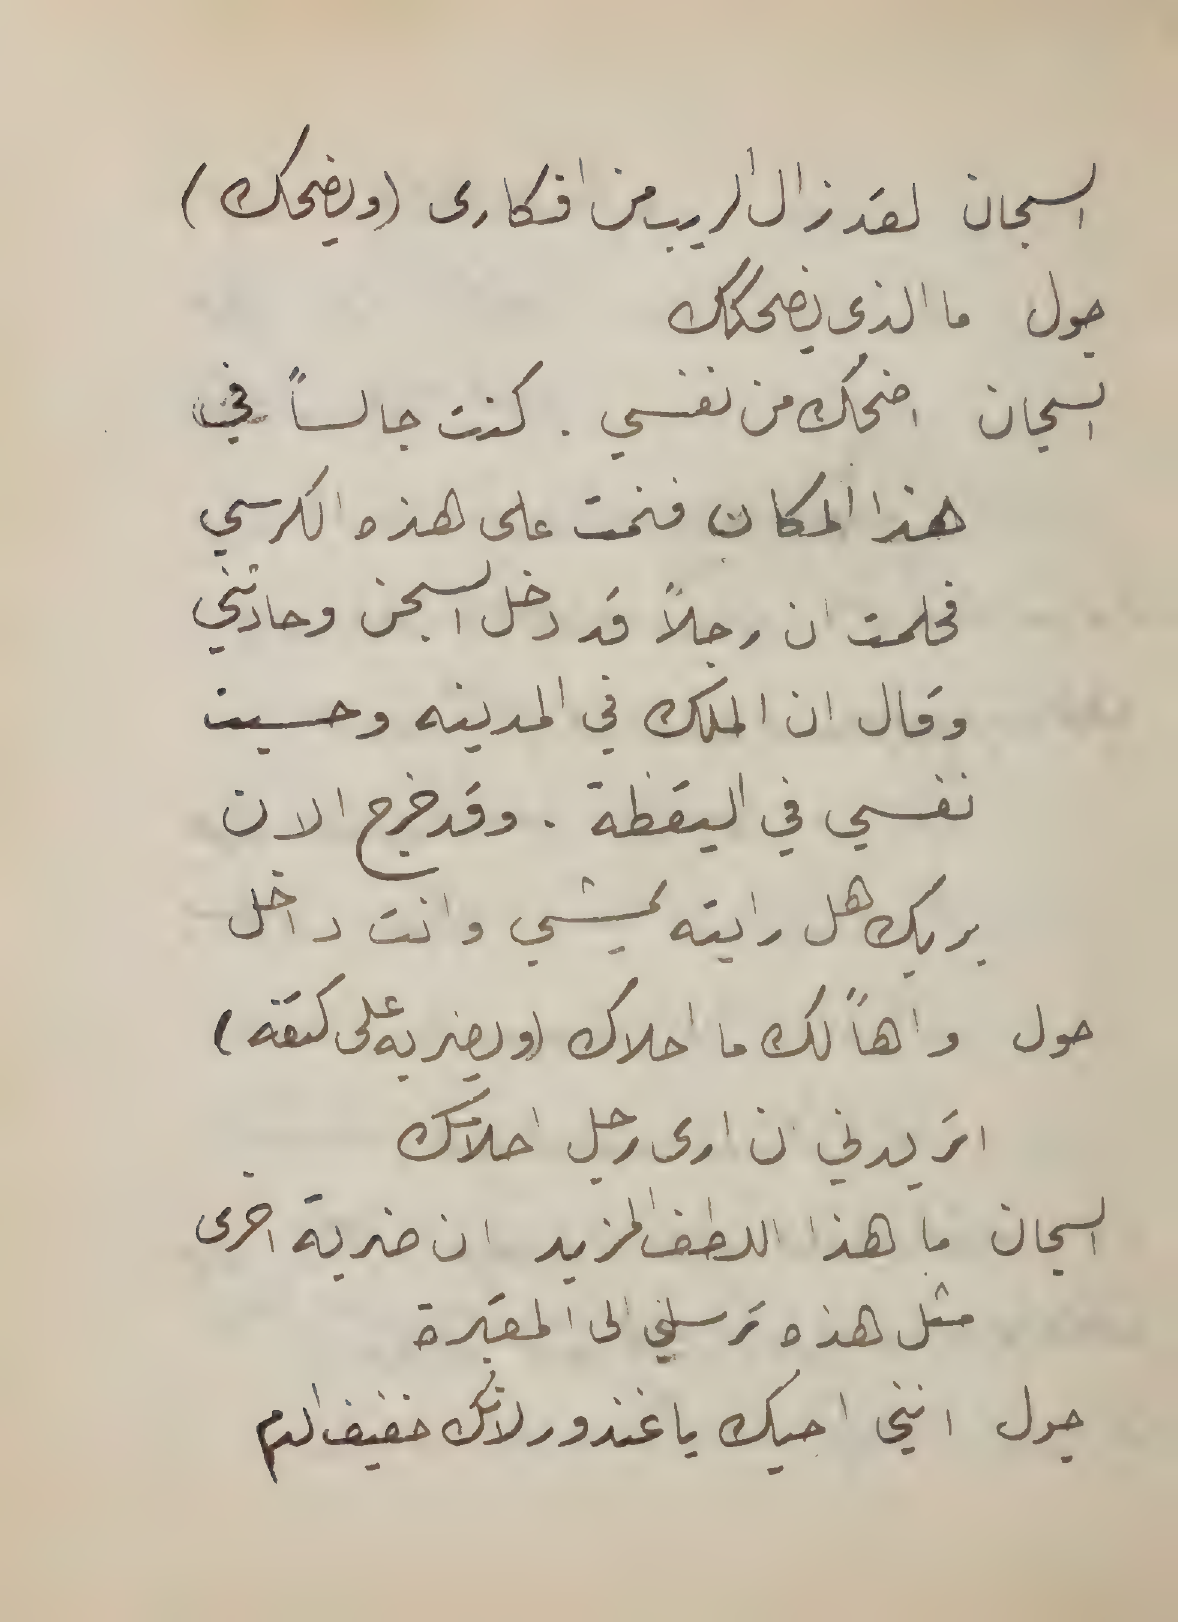 السجان لقد زال الريب من افكارى (ويضحك)
جول ما الذى يضحكك
السجان اضحك من نفسي . كنت جالساً في
هذا المكان فنمت على هذه الكرسي
فحلمت ان رجلاً قد دخل السجن وحادثني
وقال ان الملك في المدينه وحسبت
نفسي في اليقظة . وقد خرج الان
بربك هل رايته يمشي وانت داخل
جول واهاً لك ما احلاك (ويضربه على كتفه)
اتريدني ان ارى رجل احلامك
السجان ما هذا اللطف المزيد ان ضربة اخرى
مثل هذه ترسلني الى المقبرة
جول انني احبك يا غندور لانك خفيف الدم